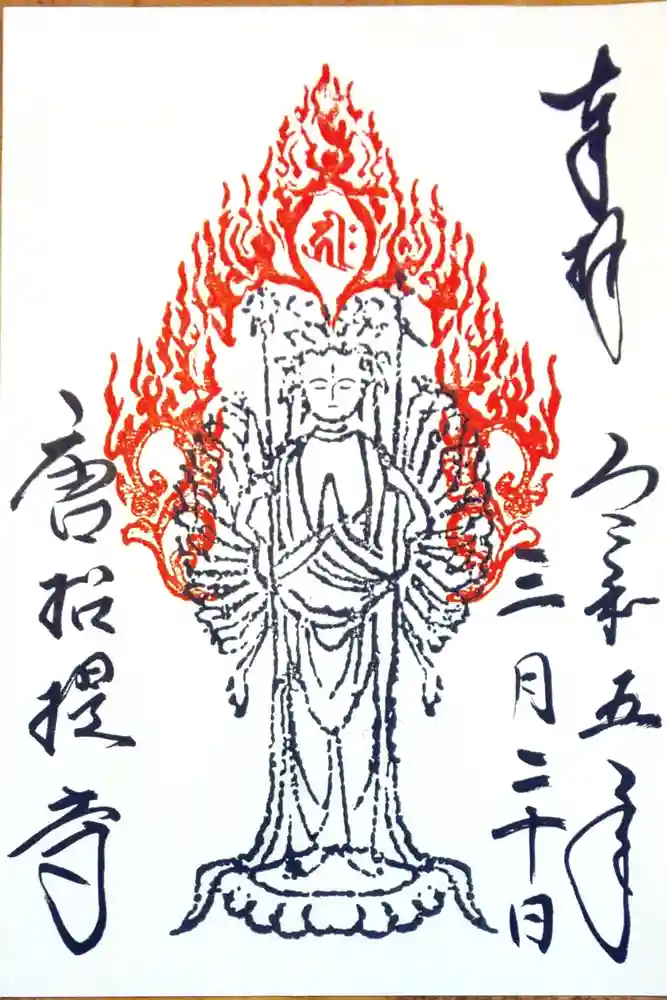 奉拝
令和五年
三月二十日
唐招提寺